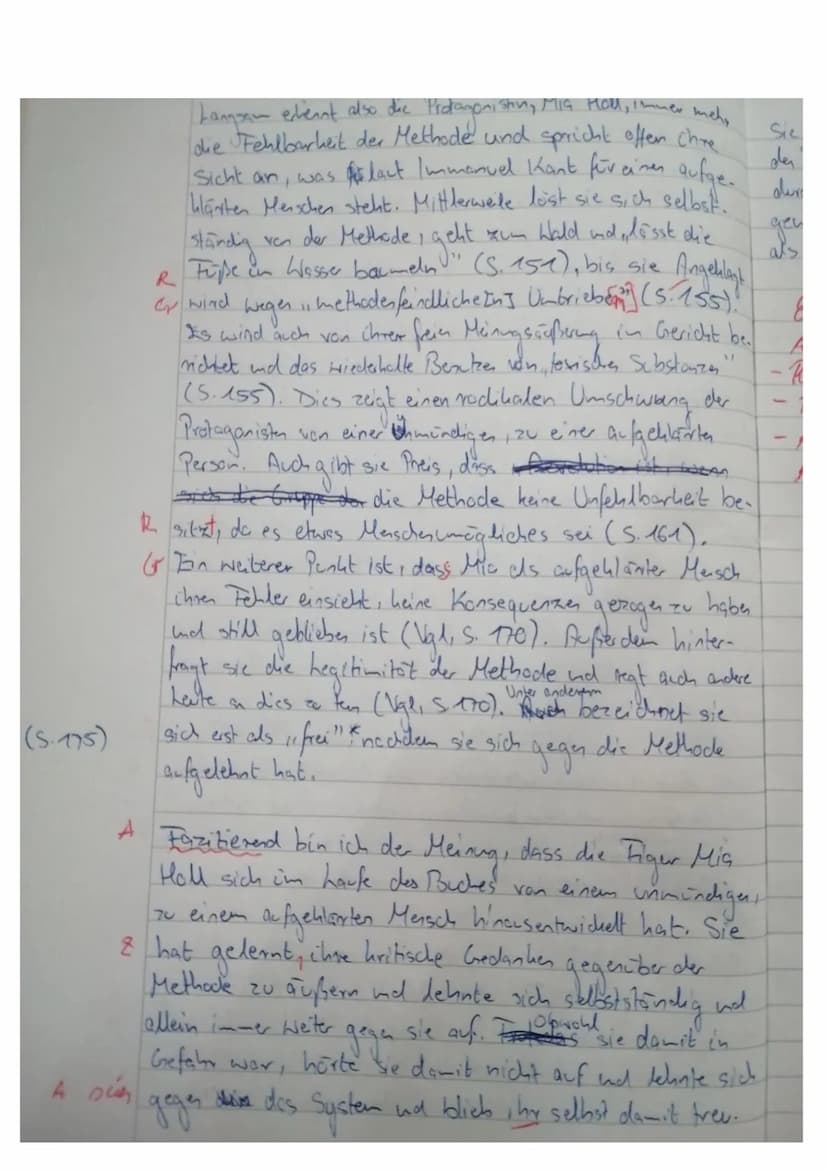 Langsam erkennt also die Protagonistin, Mia Holl, immer mehr
die Fehlbarkeit der Methode und spricht offen ihre
Sicht an, was laut Immanuel Kant für einen aufge-
klärten Menschen steht. Mittlerweile löst sie sich selbst-
ständig von der Methode, geht zum Wald und „lässt die
R Füße im Wasser baumeln" (S. 151), bis sie Angeklagt
Gr wird wegen „methodenfeindliche[n] Umtriebe[n]" (S. 155).
Es wird auch von ihrer freien Meinungsäußerung im Gericht be-
richtet und das wiederholte Benutzen von „toxischen Substanzen"
(S. 155). Dies zeigt einen radikalen Umschwung der
Protagonisten von einer Unmündigen, zu einer aufgeklärten
Person. Auch gibt sie Preis, dass
die Methode keine Unfehlbarkeit be-
R sitzt, da es etwas Menschenmögliches sei (S. 161).
Gr Ein weiterer Punkt ist, dass Mia als aufgeklärter Mensch
ihren Fehler einsieht, keine Konsequenzen gezogen zu haben
und still geblieben ist (Vgl. S. 170). Außerdem hinter-
fragt sie die Legitimität der Methode und regt auch andere
Leute an dies zu tun (Vgl. S 170). Unter anderem bezeichnet sie
(S. 175) sich erst als „frei"* nachdem sie sich gegen die Methode
aufgelehnt hat.
A Fazitierend bin ich der Meinung, dass die Figur Mia
Holl sich im Laufe des Buches von einem unmündigen,
zu einem aufgeklärten Mensch hinausentwickelt hat. Sie
Z hat gelernt, ihre kritische Gedanken gegenüber der
Methode zu äußern und lehnte sich selbstständig und
allein immer weiter gegen sie auf. Obwohl sie damit in
Gefahr war, hörte sie damit nicht auf und lehnte sich
A sich gegen das System und blieb ihr selbst damit treu.
Sie
der
durc
gen
als